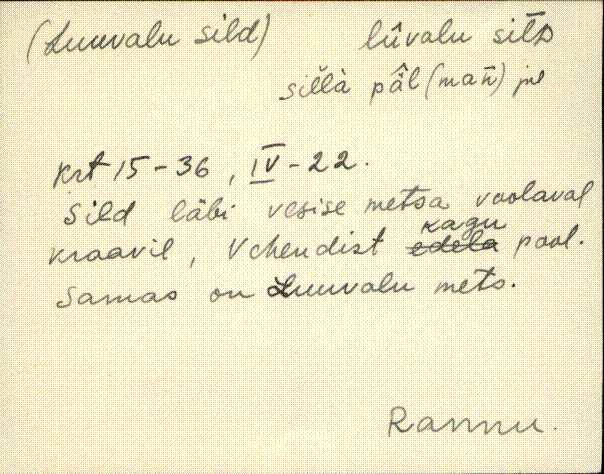 (Luuvalu sild) lūvalu silᴅ
sillà pǟl (mañ) jne
krt 15-36, IV-22.
Sild läbi vesise metsa voolaval
kraavil, Vehendist edela kagu pool.
Samas on Luuvalu mets.
Rannu.